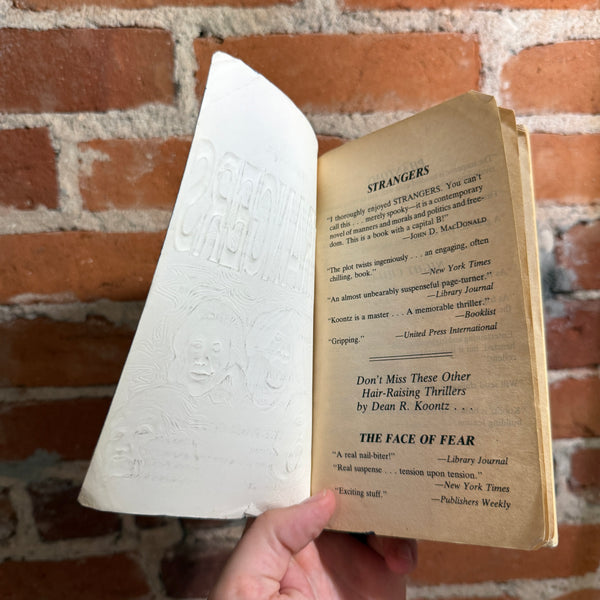 STRANGERS
"I thoroughly enjoyed STRANGERS. You can't
call this . . . merely spooky—it is a contemporary
novel of manners and morals and politics and free-
dom. This is a book with a capital B!"
—JOHN D. MACDONALD
"The plot twists ingeniously . . . an engaging, often
chilling, book."
—New York Times
"An almost unbearably suspenseful page-turner."
—Library Journal
"Koontz is a master . . . A memorable thriller."
—Booklist
"Gripping."
—United Press International
Don't Miss These Other
Hair-Raising Thrillers
by Dean R. Koontz . . .
THE FACE OF FEAR
"A real nail-biter!"
—Library Journal
"Real suspense . . . tension upon tension."
—New York Times
"Exciting stuff."
—Publishers Weekly